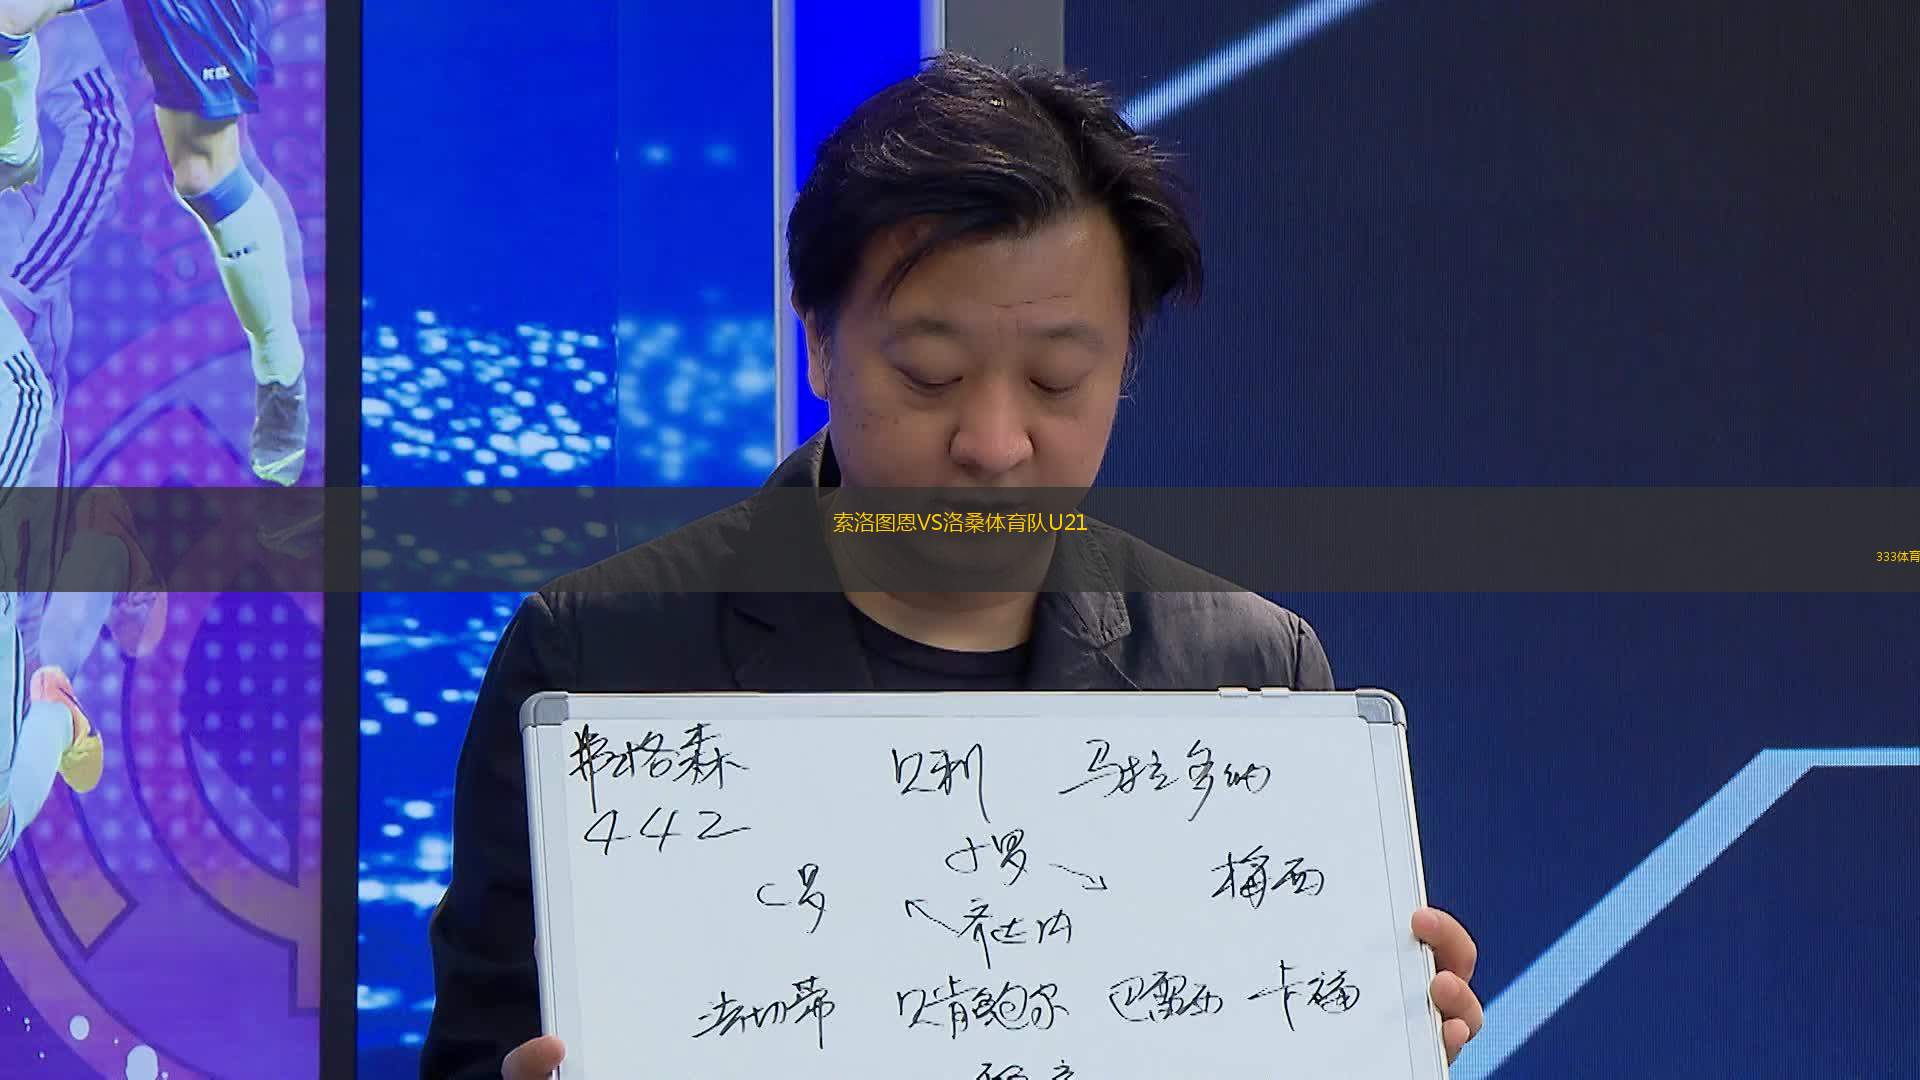 KEL
索洛图恩VS洛桑体育队U21
333体育
弗格森 贝利 马拉多纳
442
小罗
C罗 梅西
齐达内
法切蒂 贝肯鲍尔 巴雷西 卡福